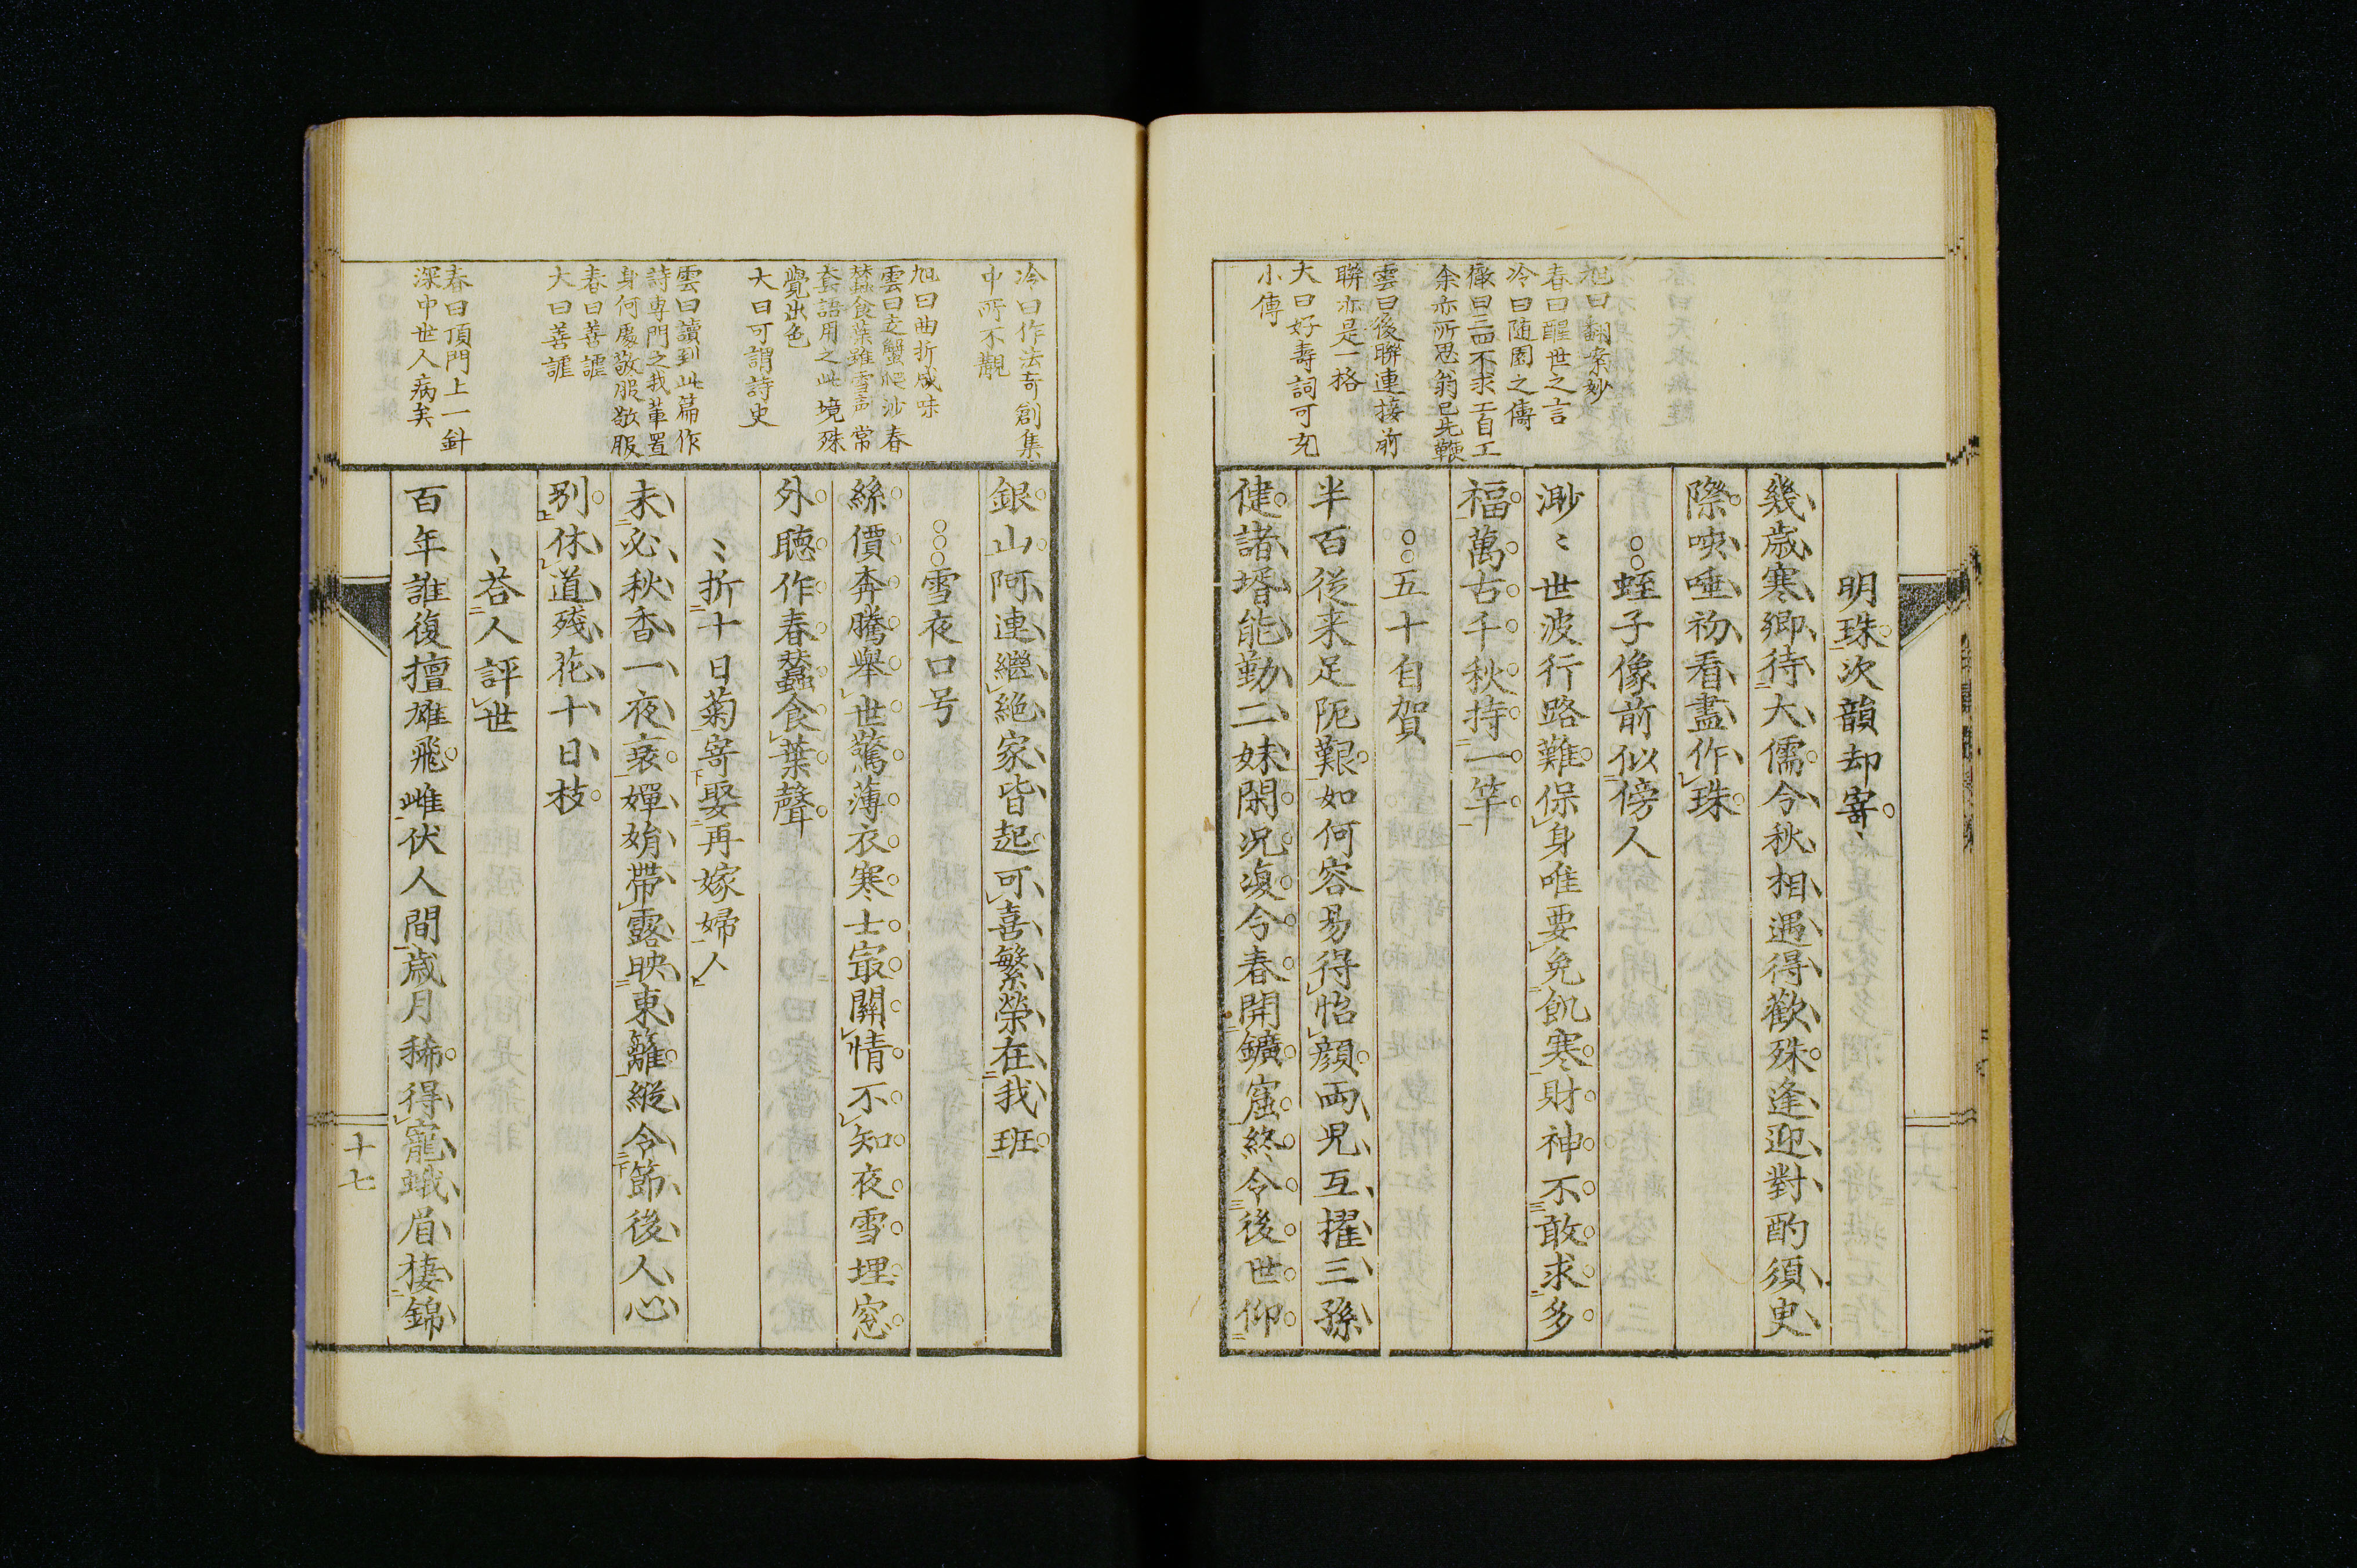 明珠次韻却寄
幾歳寒郷待大儒今秋相遇得歡殊逢迎對酌須臾
際唊唾初看盡作珠
蛭子像前似傍人
渺〻世波行路難保身唯要免飢寒財神不敢求多
福萬古千秋持一竿
五十自賀
半百従来足阨艱如何容易得怡顔兩児互擢三孫
健諸壻能勤二妹閑況復今春開鑛窟終令後世仰
旭曰翻案妙
春曰醒世之言
冷曰随園之傳
徹曰三四不求工自工
余亦所思翁已先鞭
雲曰後聯連接前
聯亦是一格
大曰好壽詞可充
小傳
銀山阿連繼絶家皆起可喜繁榮在我班
雪夜口号
絲價奔騰舉世驚薄衣寒士㝡關情不知夜雪埋窓
外聴作春蠶食葉聲
〻折十日菊寄娶再嫁婦人
未必秋香一夜衰嬋娟帶露映東籬縦令節後人心
別休道殘花十日枝
荅人評世
百年誰復擅雄飛雌伏人間歳月稀得寵蛾眉棲錦
冷曰作法奇創集
中所不觀
旭曰曲折咸味
雲曰蟹爬沙春
蠶食葉雖雪声常
套語用之此境殊
覺出色
大曰可謂詩史
雲曰讀到此篇作
詩専門之我輩置
身何處敬服敬服
春曰善謔
大曰善謔
春曰頂門上一針
深中世人病矣
十七